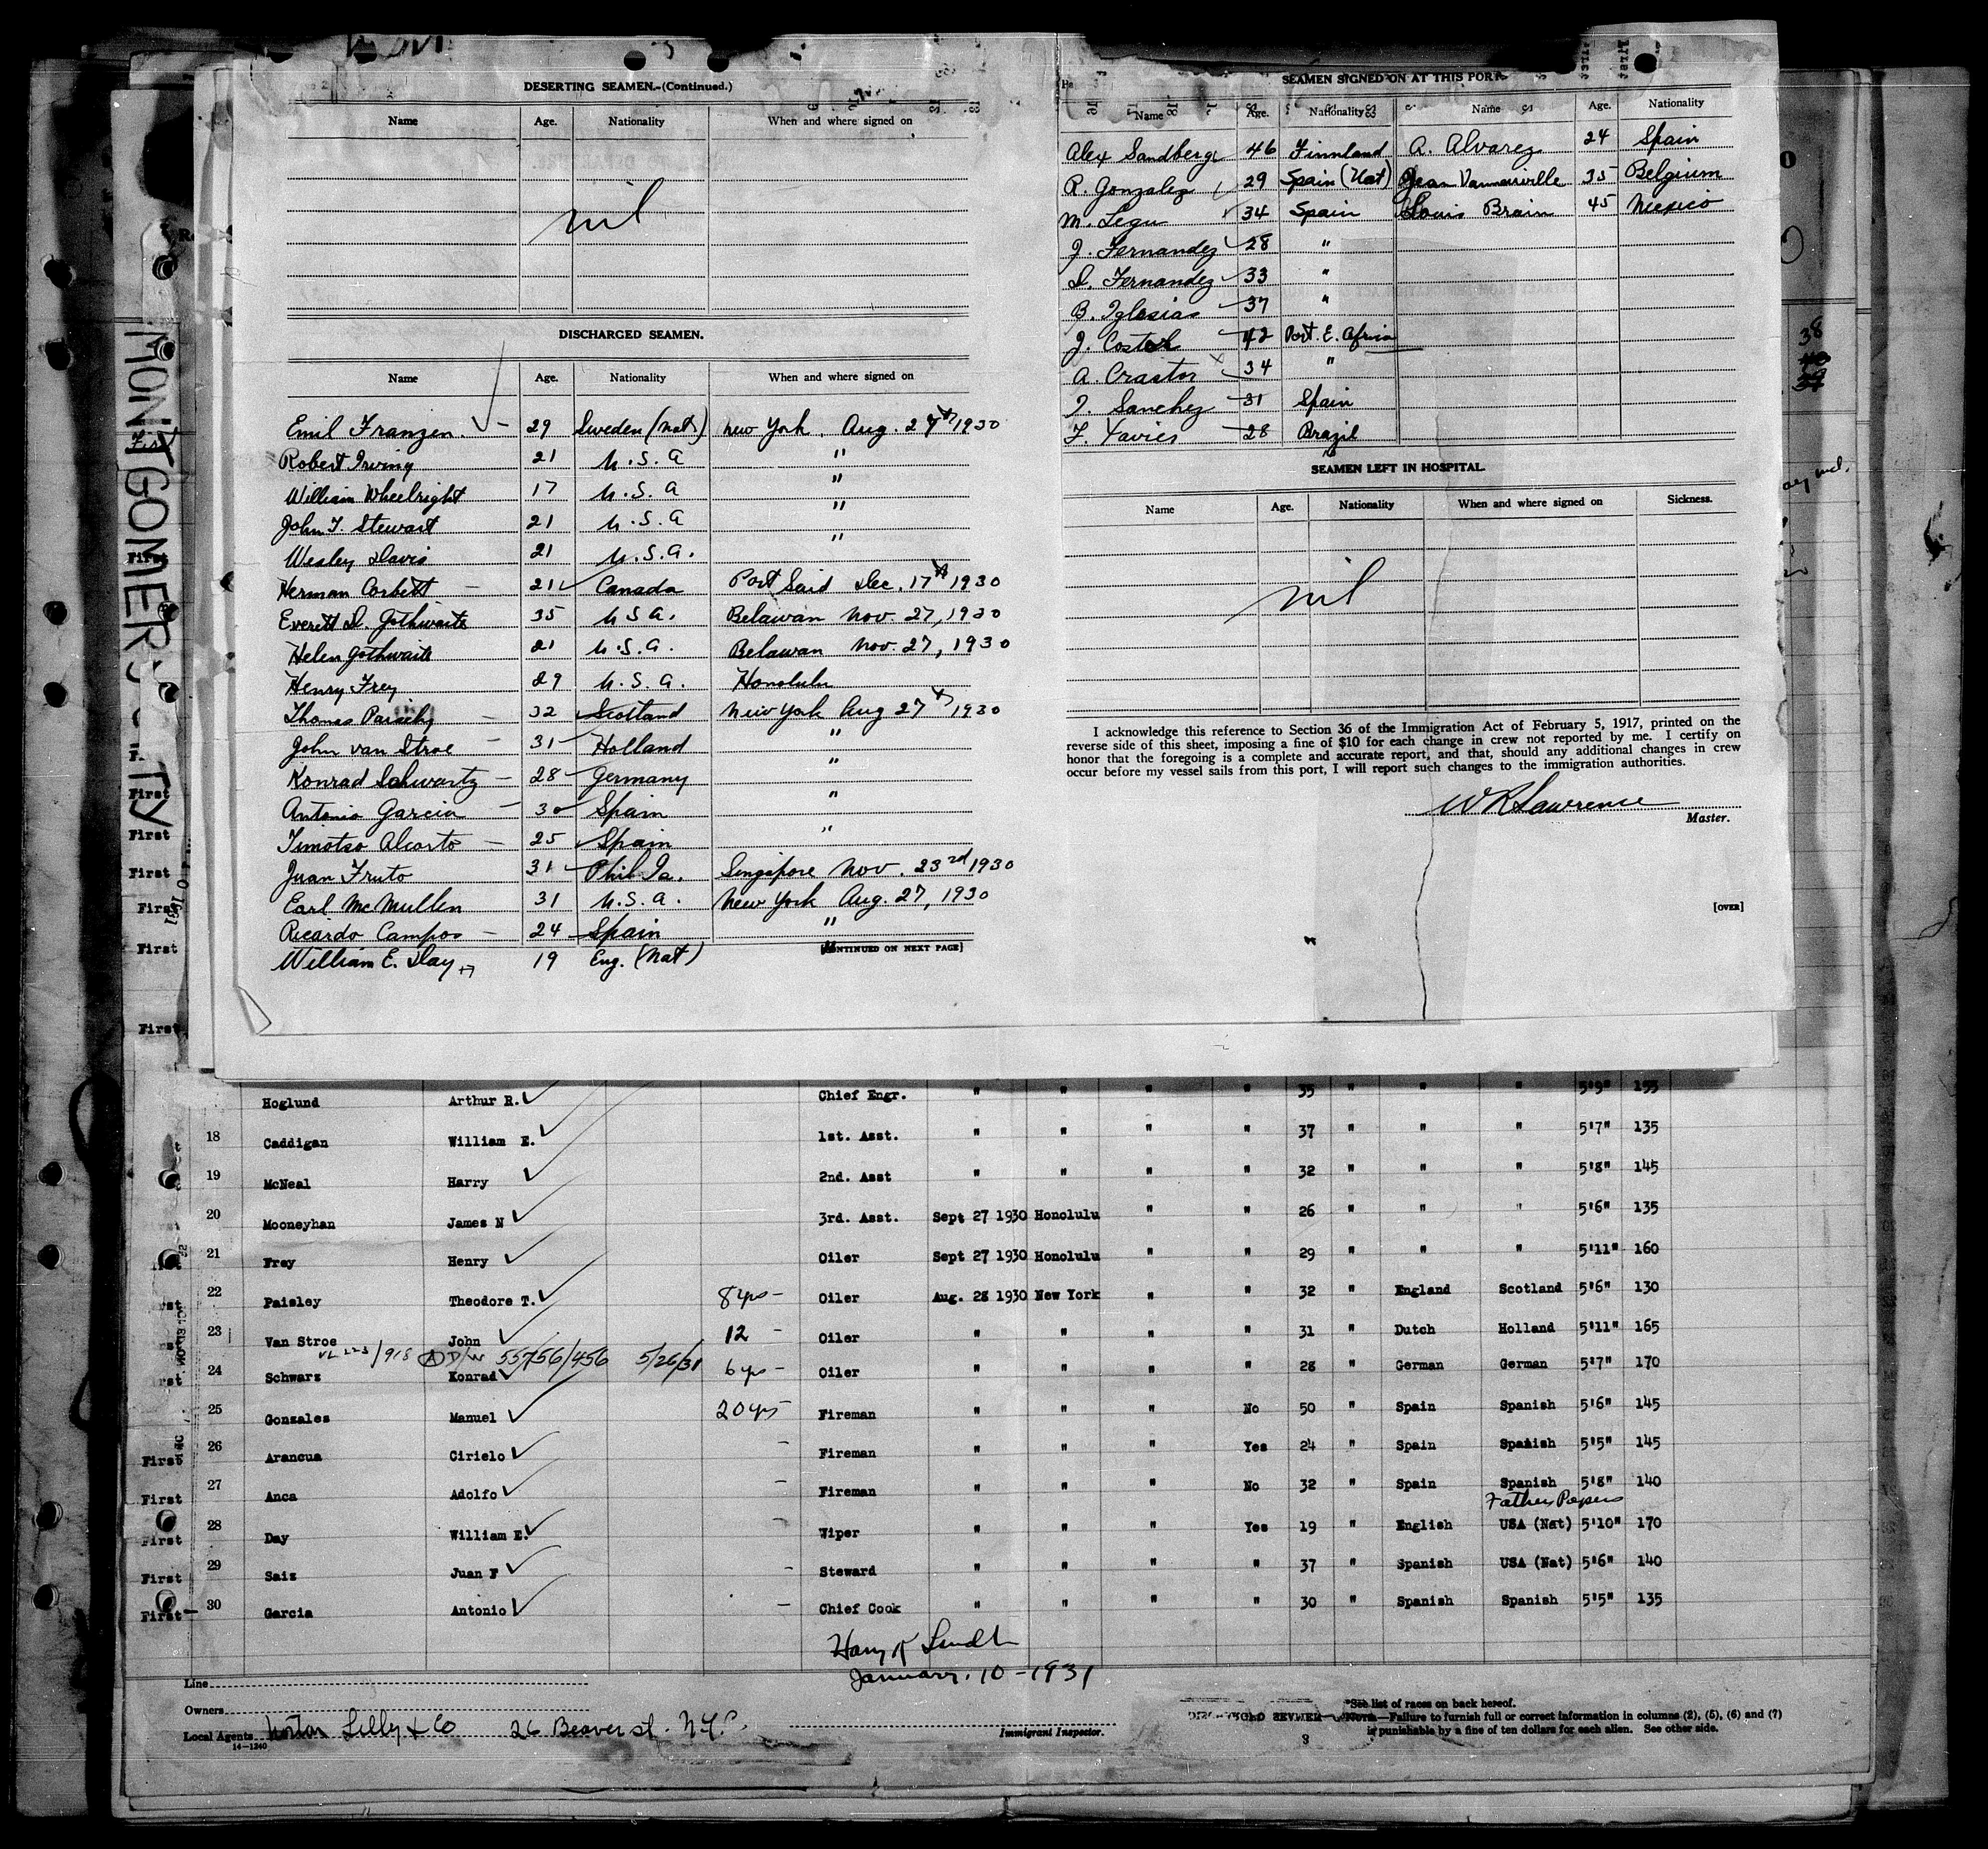 DESERTING SEAMEN.-(Continued.)
Name Age. Nationality When and where signed on
nil
DISCHARGED SEAMEN.
Name Age. Nationality When and where signed on
Emil Franzen 29 Sweden (Nat) New York, Aug. 27th 1930
Robert Irving 21 U.S.A "
William Wheelright 17 U.S.A "
John T. Stewart 21 U.S.A "
Wesley Davis 21 U.S.A. "
Herman Corbett 21 Canada Port Said Dec. 17th 1930
Everett D. Gothwaite 35 U.S.A. Belawan Nov. 27, 1930
Helen Gothwaite 21 U.S.A. Belawan Nov. 27, 1930
Henry Frey 29 U.S.A. Honolulu
Thomas Paisely 32 Scotland New York Aug 27th 1930
John van Stroe 31 Holland "
Konrad Schwartz 28 Germany "
Antonio Garcia 30 Spain "
Timotso Alcorto 25 Spain "
Juan Fruto 31 Phil Is. Singapore Nov. 23rd 1930
Earl McMullen 31 U.S.A. New York Aug. 27, 1930
Ricardo Campos 24 Spain "
[CONTINUED ON NEXT PAGE]
William E. Day 19 Eng. (Nat)
SEAMEN SIGNED ON AT THIS PORT
Name Age. Nationality Name Age. Nationality
Alex Sandberg 46 Finnland A. Alvarez 24 Spain
R. Gonzalez 29 Spain (Nat) Jean Vanneirville 35 Belgium
M. Legu 34 Spain Louis Brain 45 Mexico
J. Fernandez 28 "
D. Fernandez 33 "
B. Iglesias 37 "
J. Costa 42 Port. E. Africa
A. Crastor 34 "
J. Sanchez 31 Spain
F. Xavier 28 Brazil
SEAMEN LEFT IN HOSPITAL
Name Age. Nationality When and where signed on Sickness.
nil
I acknowledge this reference to Section 36 of the Immigration Act of February 5, 1917, printed on the
reverse side of this sheet, imposing a fine of $10 for each change in crew not reported by me. I certify on
honor that the foregoing is a complete and accurate report, and that, should any additional changes in crew
occur before my vessel sails from this port, I will report such changes to the immigration authorities.
W R Lawrence
Master.
[OVER]
MONTGOMERY CITY
Hoglund Arthur R. Chief Engr. " " " " 35 " " " 5'9" 155
18 Caddigan William E. 1st. Asst. " " " " 37 " " " 5'7" 135
19 McNeal Harry 2nd. Asst " " " " 32 " " " 5'8" 145
20 Mooneyhan James N 3rd. Asst. Sept 27 1930 Honolulu " " 26 " " " 5'6" 135
21 Frey Henry Oiler Sept 27 1930 Honolulu " " 29 " " " 5'11" 160
First 22 Paisley Theodore T. 8 yrs - Oiler Aug. 28 1930 New York " " 32 " England Scotland 5'6" 130
23 Van Stroe John 12 - Oiler " " " " 31 " Dutch Holland 5'11" 165
55756/456 5/26/31
First 24 Schwarz Konrad 6 yrs - Oiler " " " " 28 " German German 5'7" 170
25 Gonzales Manuel 20 yrs Fireman " " " No 50 " Spain Spanish 5'6" 145
First 26 Arancua Cirielo - Fireman " " " Yes 24 " Spain Spanish 5'5" 145
First 27 Anca Adolfo - Fireman " " " No 32 " Spain Spanish 5'8" 140
Fathers Papers
First 28 Day William E. - Wiper " " " Yes 19 " English USA (Nat) 5'10" 170
First 29 Saiz Juan F - Steward " " " " 37 " Spanish USA (Nat) 5'6" 140
First 30 Garcia Antonio - Chief Cook " " " " 30 " Spanish Spanish 5'5" 135
January. 10 - 1931
Line
Owners
Local Agents Norton Lilly & Co 26 Beaver st. N.Y.C.
14-1240
Immigrant Inspector.
*See list of races on back hereof.
NOTE.—Failure to furnish full or correct information in columns (2), (5), (6) and (7)
is punishable by a fine of ten dollars for each alien. See other side.